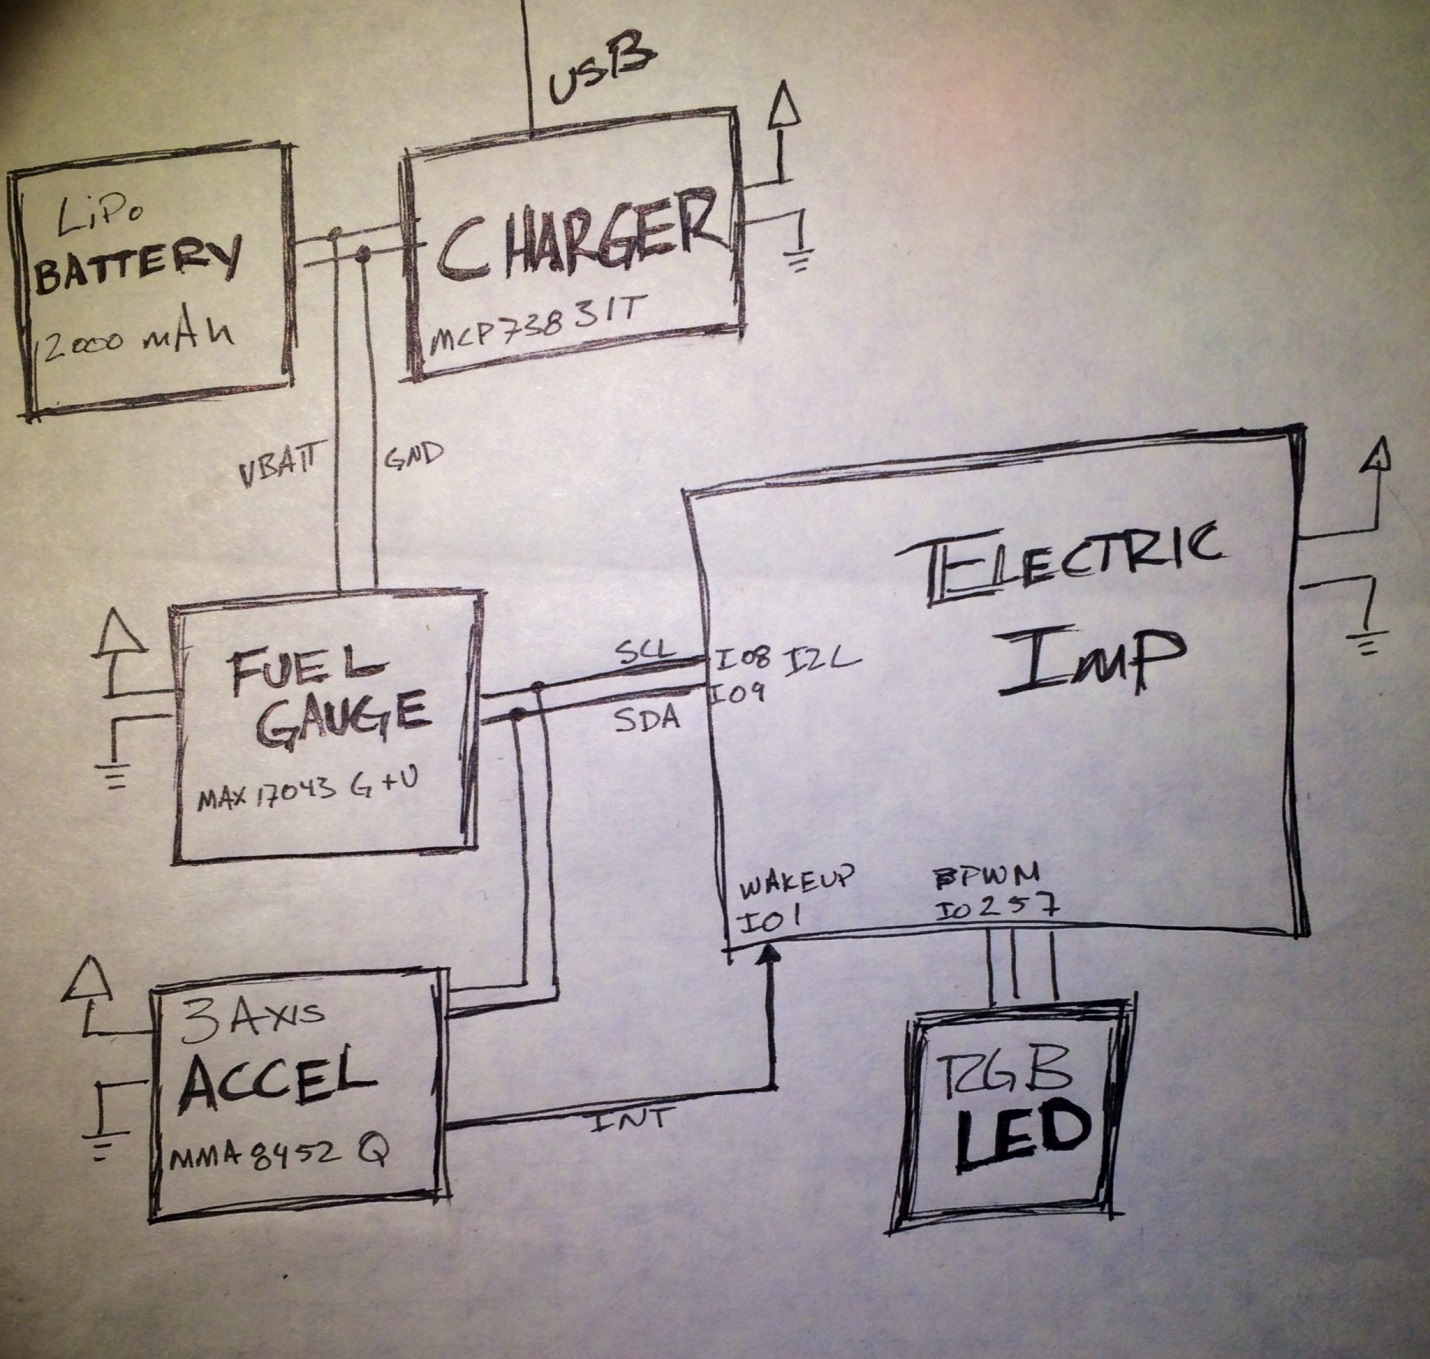 USB
LiPo
BATTERY
2000 mAh
CHARGER
MCP73831T
VBATT
GND
ELECTRIC
IMP
FUEL
GAUGE
MAX17043 G+U
SCL
IO8 I2C
IO9
SDA
WAKEUP
IO1
PWM
IO 2 5 7
3 AXIS
ACCEL
MMA8452Q
INT
RGB
LED